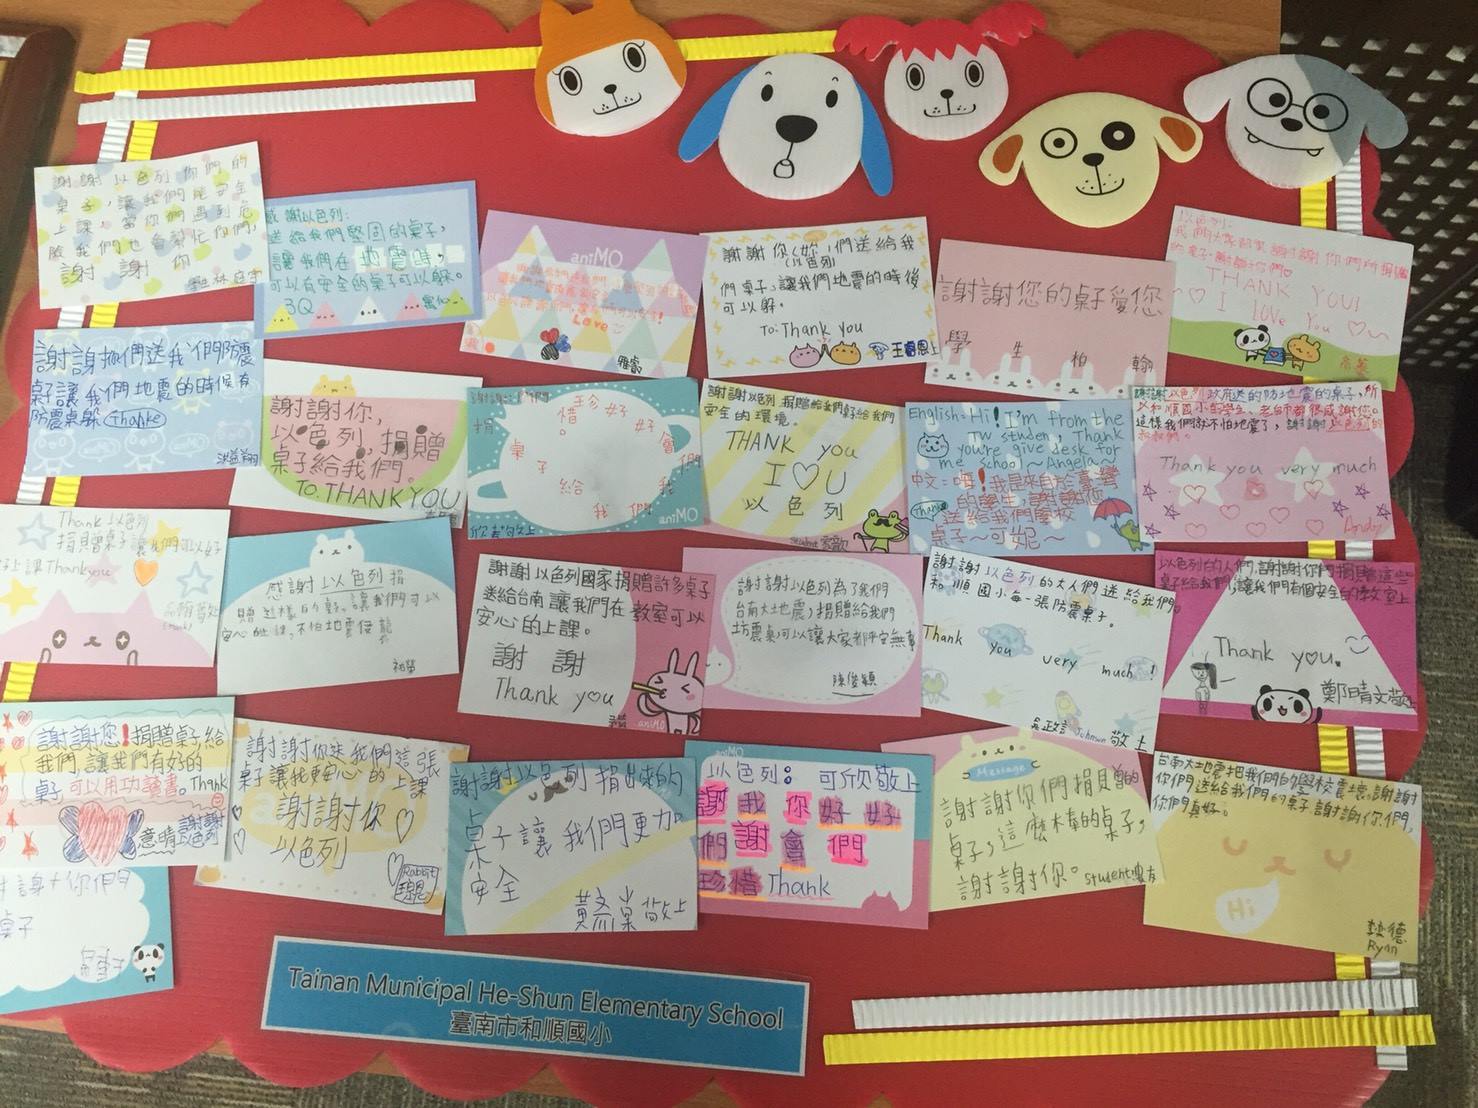 謝謝以色列你們的
桌子,讓我們能安全
上課,當你們遇到危
險我們也會幫忙你們,
謝 謝 你
感謝以色列:
送給我們堅固的桌子,
讓我們在地震時,
可以有安全的桌子可以躲。
3Q
aniMO
Love
雅歆
謝謝你(妳)們送給我
(以色列)
們桌子,讓我們地震的時後
可以躲。
To: Thank you
王睿恩上
謝謝您的桌子愛您
學 生 柏 翰
以色列:
我們大家都要謝謝你們所捐贈
的桌子,謝謝你們♡
THANK YOU!
I LOVE You ♡
謝謝 他們送我們防震
桌讓我們地震的時候有
防震桌躲 Thanke
洪益翔
謝謝你,
以色列,捐贈
桌子給我們。
TO.THANK YOU
謝謝以色列捐贈給我們桌子給我們
安全的環境。
THANK you
I ♡ U
以 色 列
English=Hi! I'm from the
TW studen, Thank
you're give desk for
me school ~ Angela
中文=嗨!我是來自於臺灣
的學生,謝謝你
送給我們學校
桌子~可妮~
Thanks
謝謝以色列政府送的防地震的桌子,所
以和順國小的學生、老師都很感謝您。
這樣我們就不怕地震了,謝謝以色列的
叔叔們。
Thank you very much
Andy
Thank 以色列
捐贈桌子讓我們可以好
好上課Thankyou
感謝 以色列 捐
贈 這樣的桌,讓我們可以
安心的上課,不怕地震侵襲
謝謝以色列國家捐贈許多桌子
送給台南讓我們在教室可以
安心的上課。
謝 謝
Thank you
aniMO
謝謝以色列為了我們
台南大地震,捐贈給我們
防震桌,可以讓大家都平安無事
陳俊穎
aniMO
謝謝以色列的大人們送給我們
和順國小每一張防震桌子。
Thank you very much!
吳政言 Johnson 敬上
以色列的人們,謝謝你們捐贈這些
桌子給我們,讓我們有個安全的教室上
Thank you.
鄭晴文敬上
謝謝您!捐贈桌子給
我們,讓我們有好的
桌子可以用功讀書。Thank
意晴 謝謝
以色列
謝謝你送我們這張
桌子讓我更安心的上課
謝謝你
以色列
Rabbit
謝謝以色列捐出來的
桌子讓 我們更加
安全
敬上
aniMO
以色列: 可欣敬上
謝 我 你 好 好
們 謝 會 們
珍惜 Thank
Message
謝謝你們捐贈的
桌子,這麼棒的桌子,
謝謝你。student
台南大地震把我們的學校震壞,謝謝
你們送給我們的桌子謝謝你們,
你們真好。
Hi
Ryan
謝謝你們
桌子
Tainan Municipal He-Shun Elementary School
臺南市和順國小